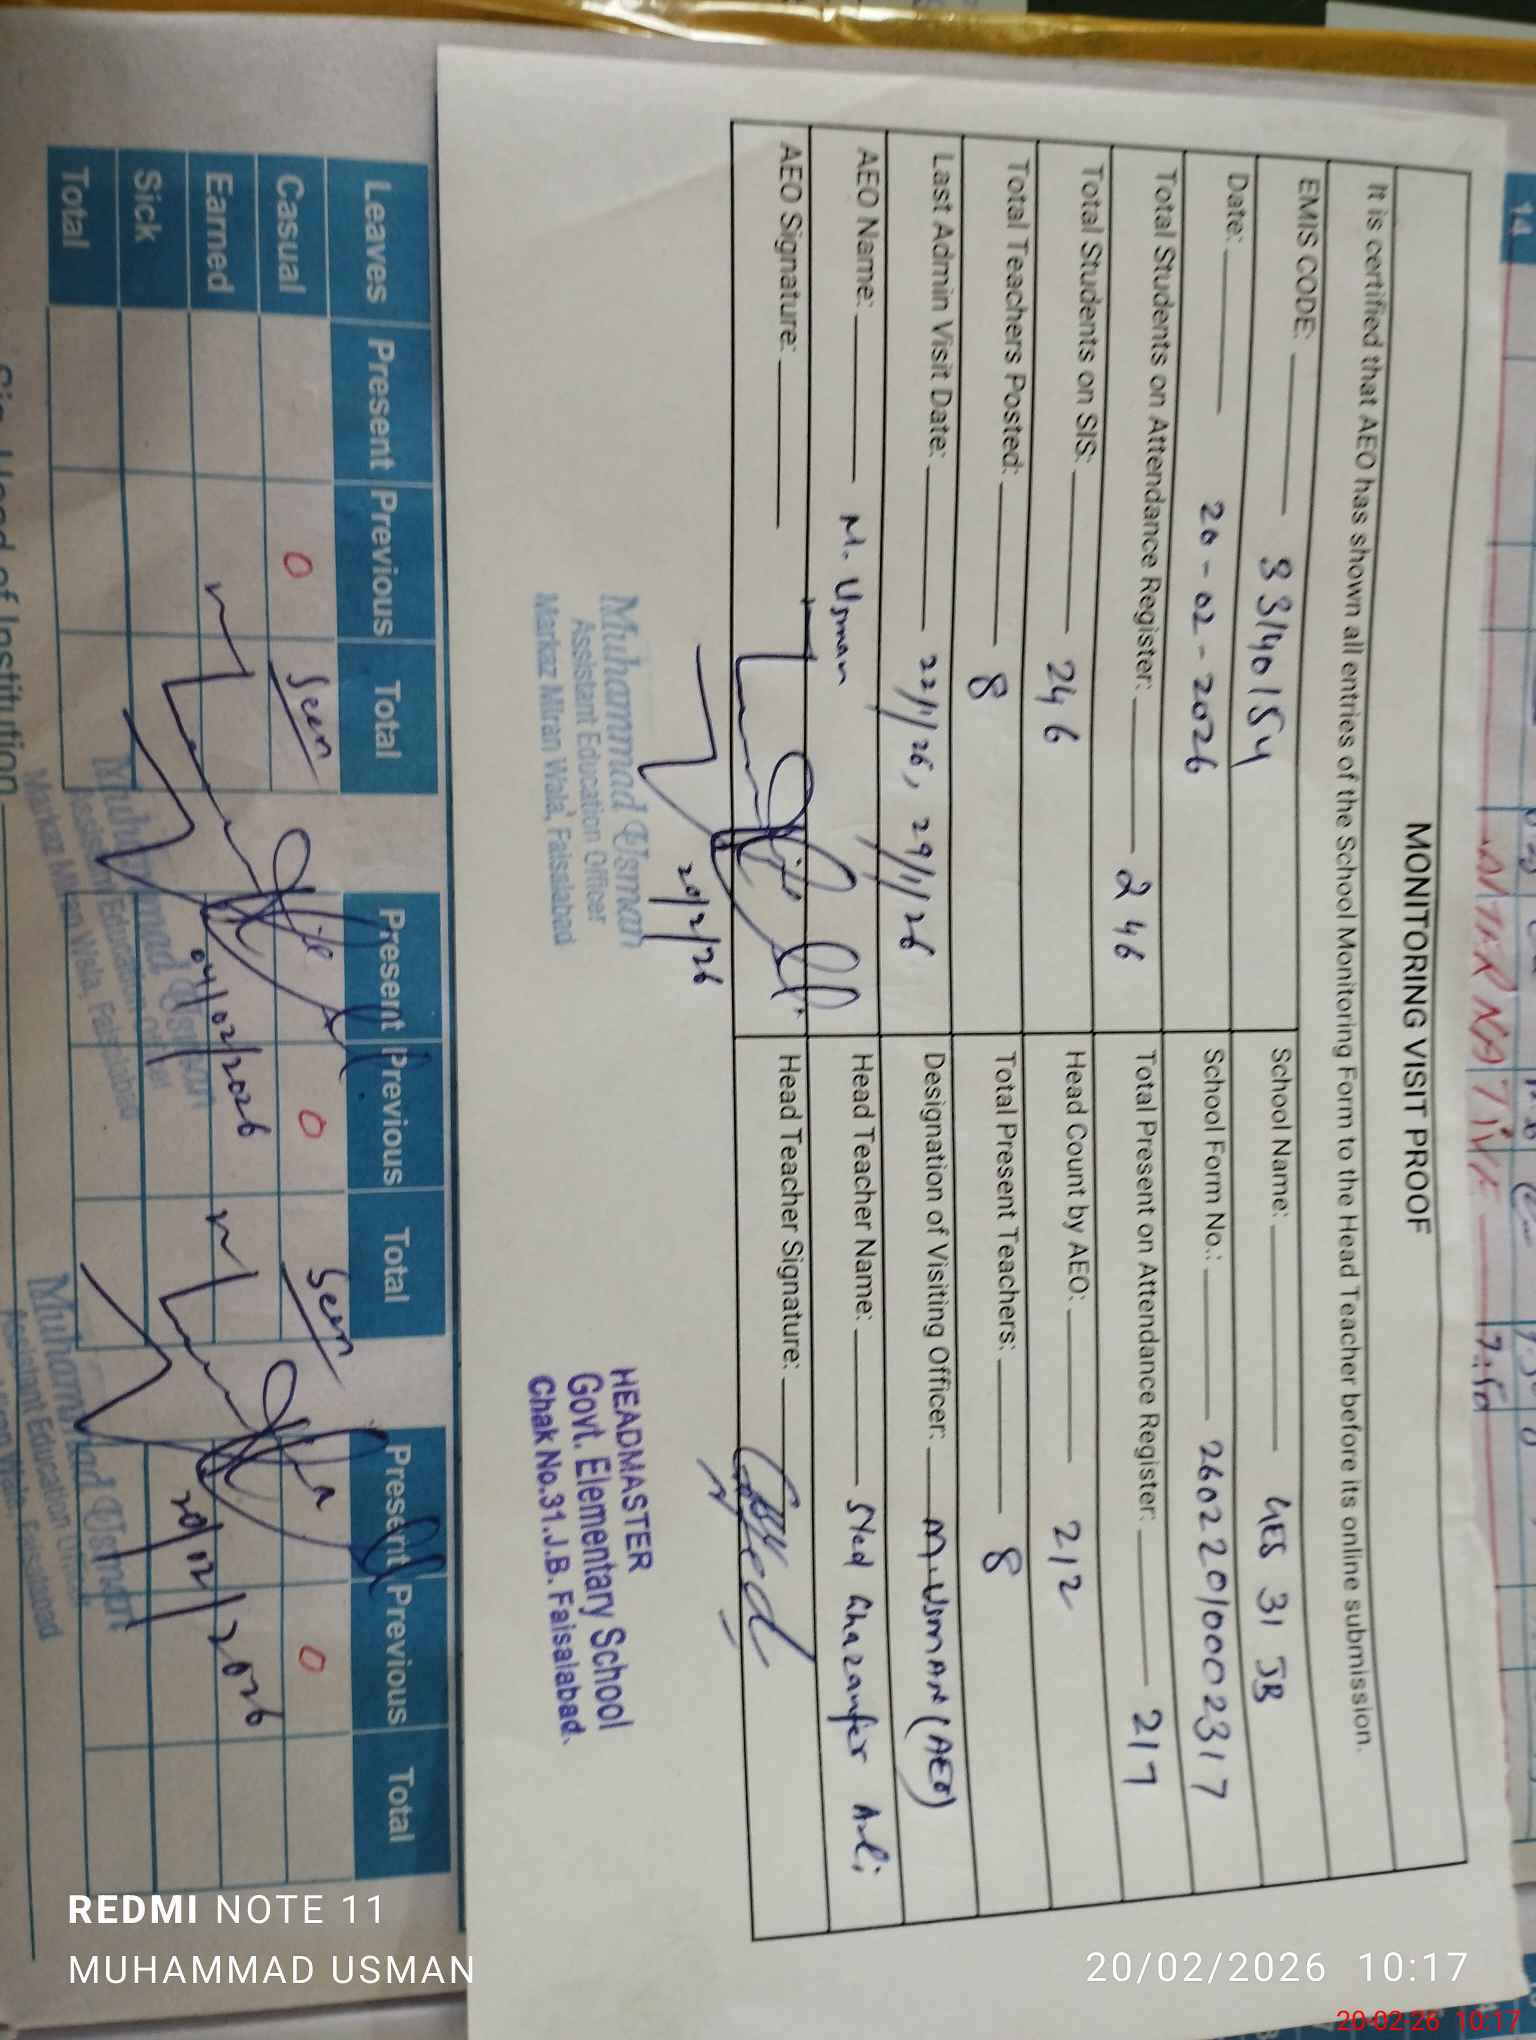 MONITORING VISIT PROOF
It is certified that AEO has shown all entries of the School Monitoring Form to the Head Teacher before its online submission.
EMIS CODE: 33140154 School Name: GES 31 JB
Date: 20-02-2026 School Form No.: 26022010002317
Total Students on Attendance Register: 246 Total Present on Attendance Register: 217
Total Students on SIS: 246 Head Count by AEO: 212
Total Teachers Posted: 8 Total Present Teachers: 8
Last Admin Visit Date: 22/1/26, 29/1/26 Designation of Visiting Officer: M. USMAN (AEO)
AEO Name: M. Usman Head Teacher Name: Syed Ghazanfer Ali
AEO Signature: Head Teacher Signature:
20/2/26
Muhammad Usman
Assistant Education Officer
Markaz Miran Wala, Faisalabad
HEADMASTER
Govt. Elementary School
Chak No.31.J.B. Faisalabad.
Leaves Present Previous Total Present Previous Total Present Previous Total
Casual 0 Seen 0 Seen 0
Earned
Sick
Total
04/02/2026
20/02/2026
Muhammad Usman
Assistant Education Officer
Markaz Miran Wala, Faisalabad
Muhammad Usman
Assistant Education
Miran Wala, Faisalabad
Head of Institution
14
REDMI NOTE 11
MUHAMMAD USMAN
20/02/2026 10:17
20-02-26 10:17